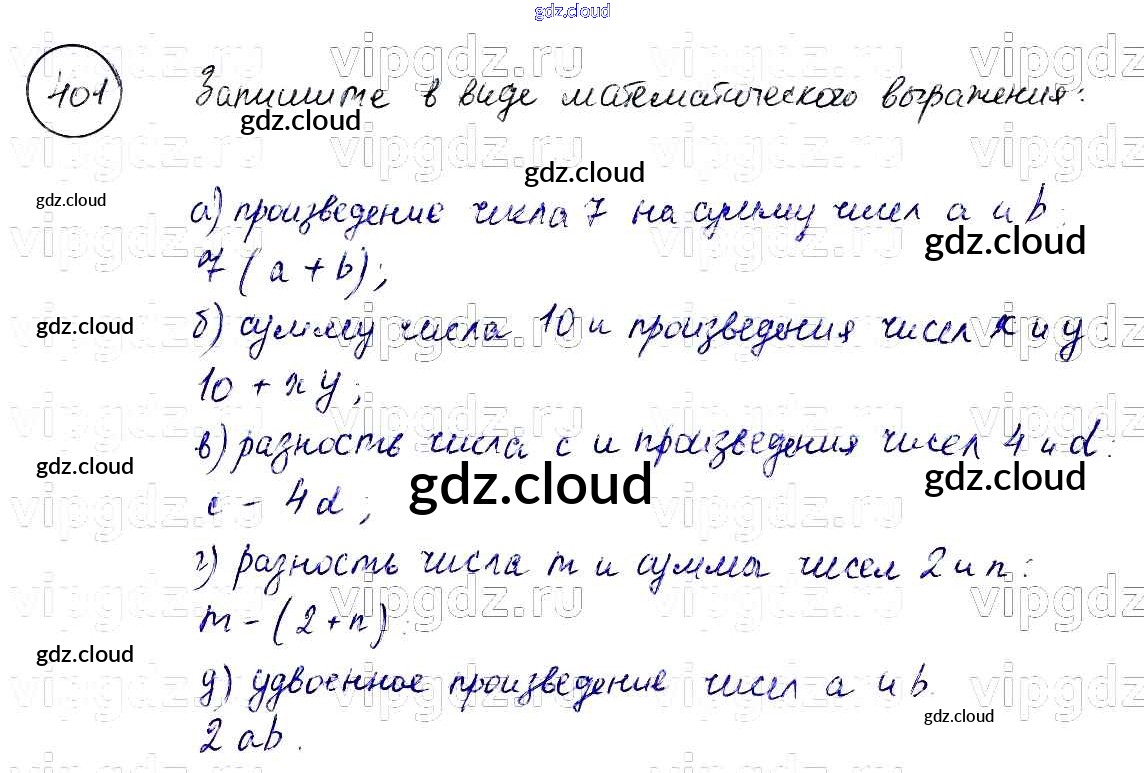 gdz.cloud
401 Запишите в виде математического выражения:
gdz.cloud
gdz.cloud
gdz.cloud
а) произведение числа 7 на сумму чисел a и b:
gdz.cloud
7(a+b);
gdz.cloud
б) сумму числа 10 и произведения чисел x и y:
10 + xy;
в) разность числа c и произведения чисел 4 и d:
gdz.cloud
gdz.cloud
gdz.cloud
c - 4d;
г) разность числа m и суммы чисел 2 и n:
m - (2+n).
gdz.cloud
д) удвоенное произведение чисел a и b.
gdz.cloud
2ab.
vipgdz.ru